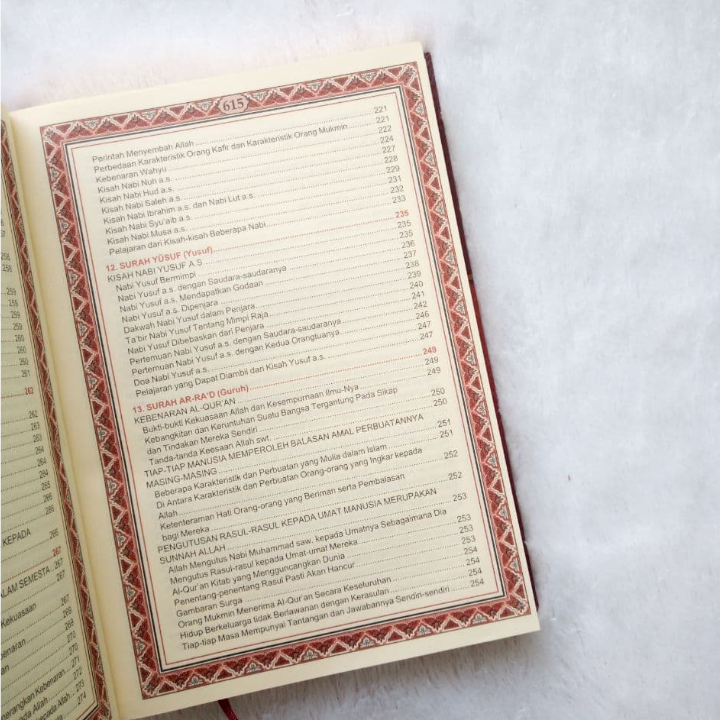 615
Perintah Menyembah Allah 221
Perbedaan Karakteristik Orang Kafir dan Karakteristik Orang Mukmin 221
Kebenaran Wahyu 222
Kisah Nabi Nuh a.s. 224
Kisah Nabi Hud a.s. 227
Kisah Nabi Saleh a.s. 228
Kisah Nabi Ibrahim a.s. dan Nabi Lut a.s. 229
Kisah Nabi Syu'aib a.s. 231
Kisah Nabi Musa a.s. 232
Pelajaran dari Kisah-kisah Beberapa Nabi 233
12. SURAH YŪSUF (Yusuf) 235
KISAH NABI YUSUF A.S. 235
Nabi Yusuf Bermimpi 235
Nabi Yusuf a.s. dengan Saudara-saudaranya 236
Nabi Yusuf a.s. Mendapatkan Godaan 237
Nabi Yusuf a.s. Dipenjara 238
Dakwah Nabi Yusuf dalam Penjara 239
Ta'bir Nabi Yusuf Tentang Mimpi Raja 240
Nabi Yusuf Dibebaskan dari Penjara 241
Pertemuan Nabi Yusuf a.s. dengan Saudara-saudaranya 242
Pertemuan Nabi Yusuf a.s. dengan Kedua Orangtuanya 246
Doa Nabi Yusuf a.s. 247
Pelajaran yang Dapat Diambil dari Kisah Yusuf a.s. 247
13. SURAH AR-RA'D (Guruh) 249
KEBENARAN AL-QUR'AN 249
Bukti-bukti Kekuasaan Allah dan Kesempurnaan Ilmu-Nya 249
Kebangkitan dan Keruntuhan Suatu Bangsa Tergantung Pada Sikap
dan Tindakan Mereka Sendiri 250
Tanda-tanda Keesaan Allah swt. 250
TIAP-TIAP MANUSIA MEMPEROLEH BALASAN AMAL PERBUATANNYA
MASING-MASING 251
Beberapa Karakteristik dan Perbuatan yang Mulia dalam Islam 251
Di Antara Karakteristik dan Perbuatan Orang-orang yang Ingkar kepada
Allah 252
Ketenteraman Hati Orang-orang yang Beriman serta Pembalasan
bagi Mereka 252
PENGUTUSAN RASUL-RASUL KEPADA UMAT MANUSIA MERUPAKAN
SUNNAH ALLAH 253
Allah Mengutus Nabi Muhammad saw. kepada Umatnya Sebagaimana Dia
Mengutus Rasul-rasul kepada Umat-umat Mereka 253
Al-Qur'an Kitab yang Mengguncangkan Dunia 253
Penentang-penentang Rasul Pasti Akan Hancur 253
Gambaran Surga 254
Orang Mukmin Menerima Al-Qur'an Secara Keseluruhan 254
Hidup Berkeluarga tidak Berlawanan dengan Kerasulan 254
Tiap-tiap Masa Mempunyai Tantangan dan Jawabannya Sendiri-sendiri 254